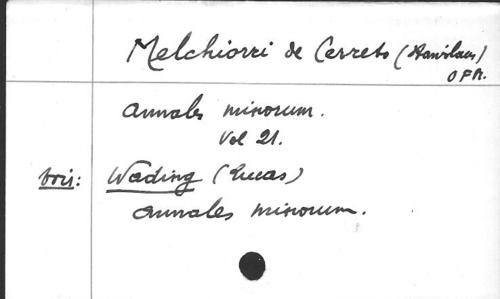 Melchiorri de Cerreto (Stanislaus)
OFM.
Annales minorum.
Vol 21.
Voir: Wading (Lucas)
Annales minorum.